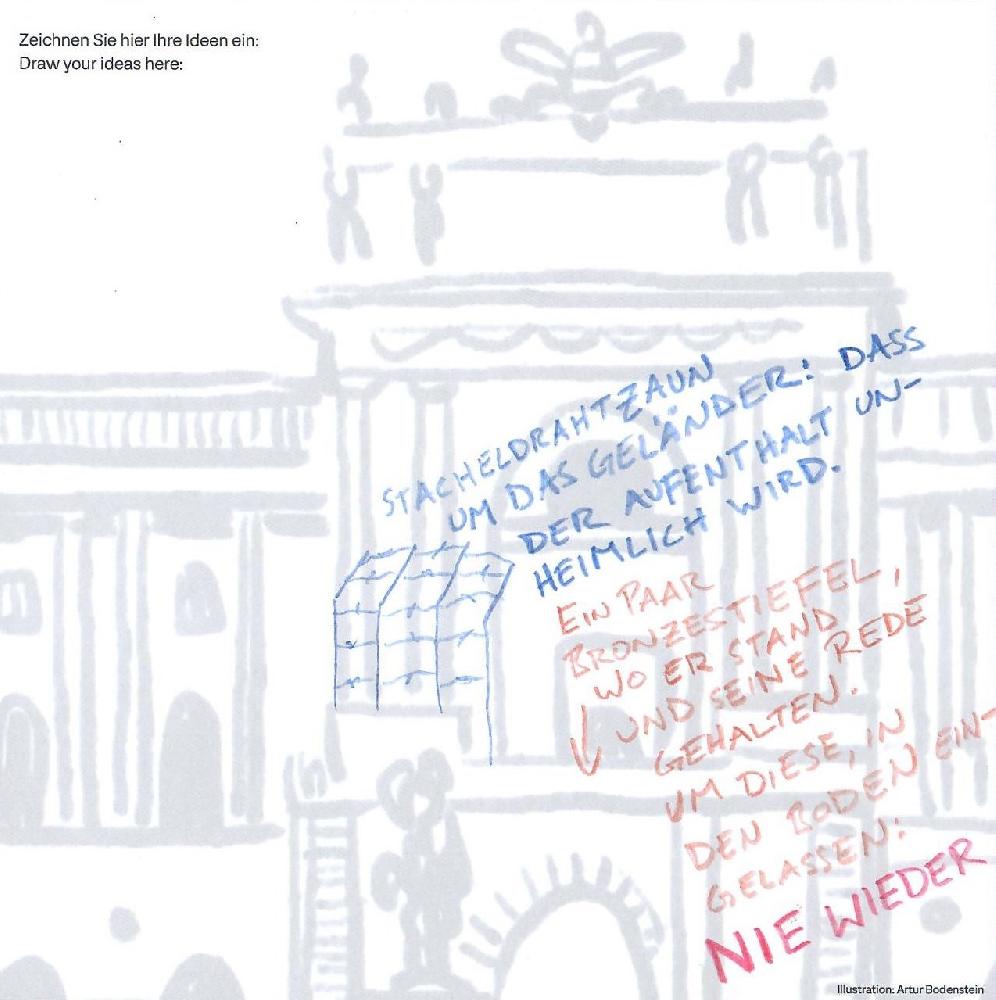 Zeichnen Sie hier Ihre Ideen ein:
Draw your ideas here:
STACHELDRAHTZAUN
UM DAS GELÄNDER: DASS
DER AUFENTHALT UN-
HEIMLICH WIRD.
EIN PAAR
BRONZESTIEFEL,
WO ER STAND
UND SEINE REDE
GEHALTEN.
UM DIESE, IN
DEN BODEN EIN-
GELASSEN:
NIE WIEDER
Illustration: Artur Bodenstein